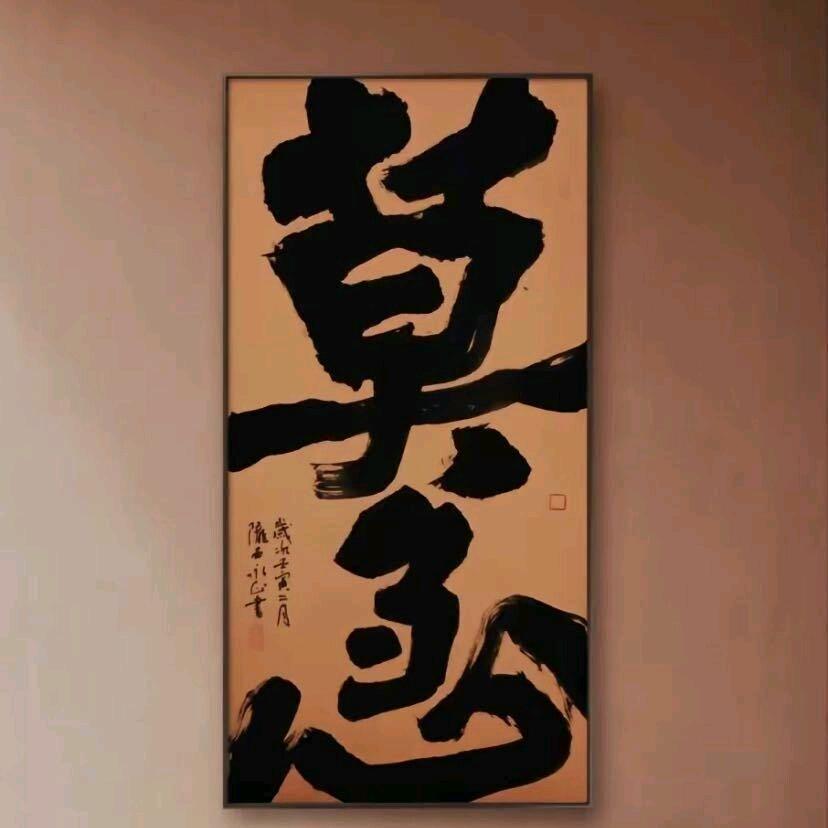 莫急
歲次壬寅二月
隴西書